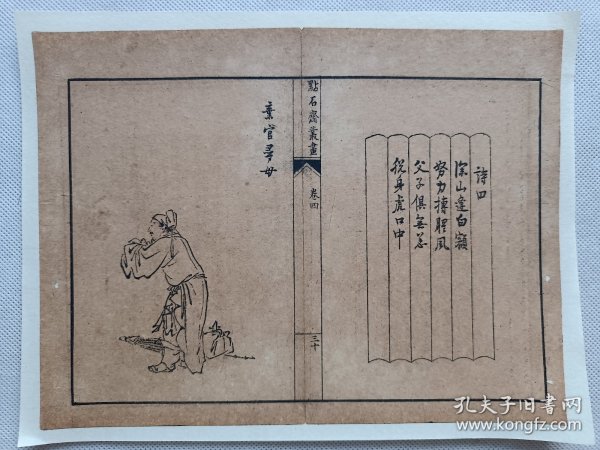 詩曰
深山逢白額
努力搏腥風
父子俱無恙
脫身虎口中
點石齋叢畫
卷四
三十
棄官尋母
孔夫子旧书网
www.kongfz.com